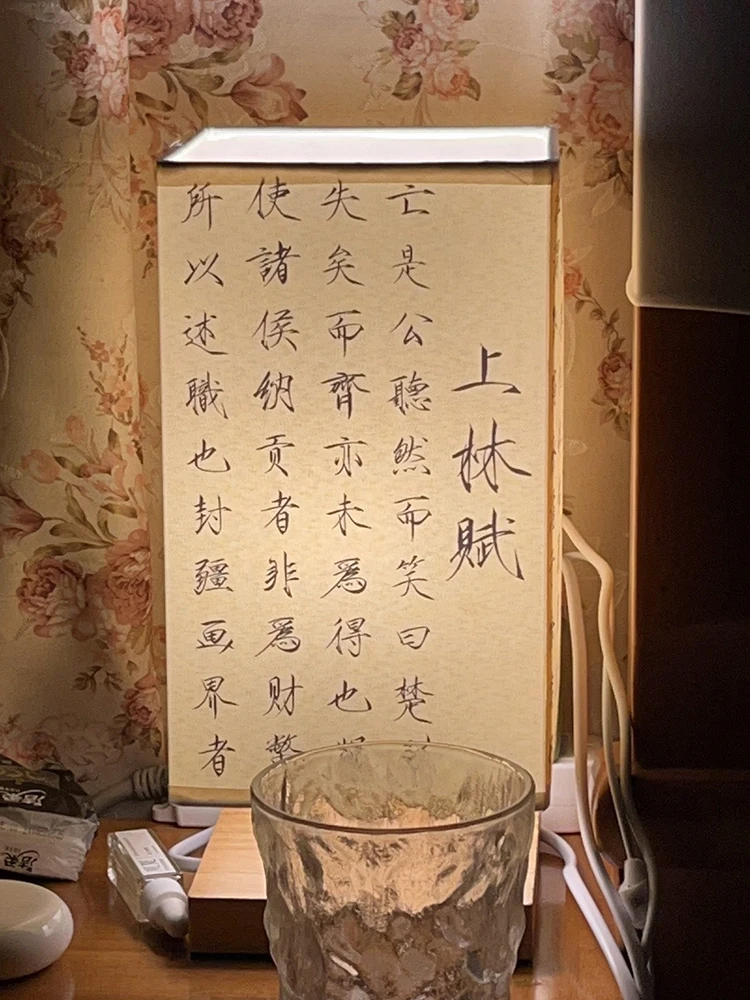 上林賦
亡是公聽然而笑曰楚
失矣而齊亦未爲得也
使諸侯納貢者非爲财幣
所以述職也封疆画界者
洁柔
洁柔